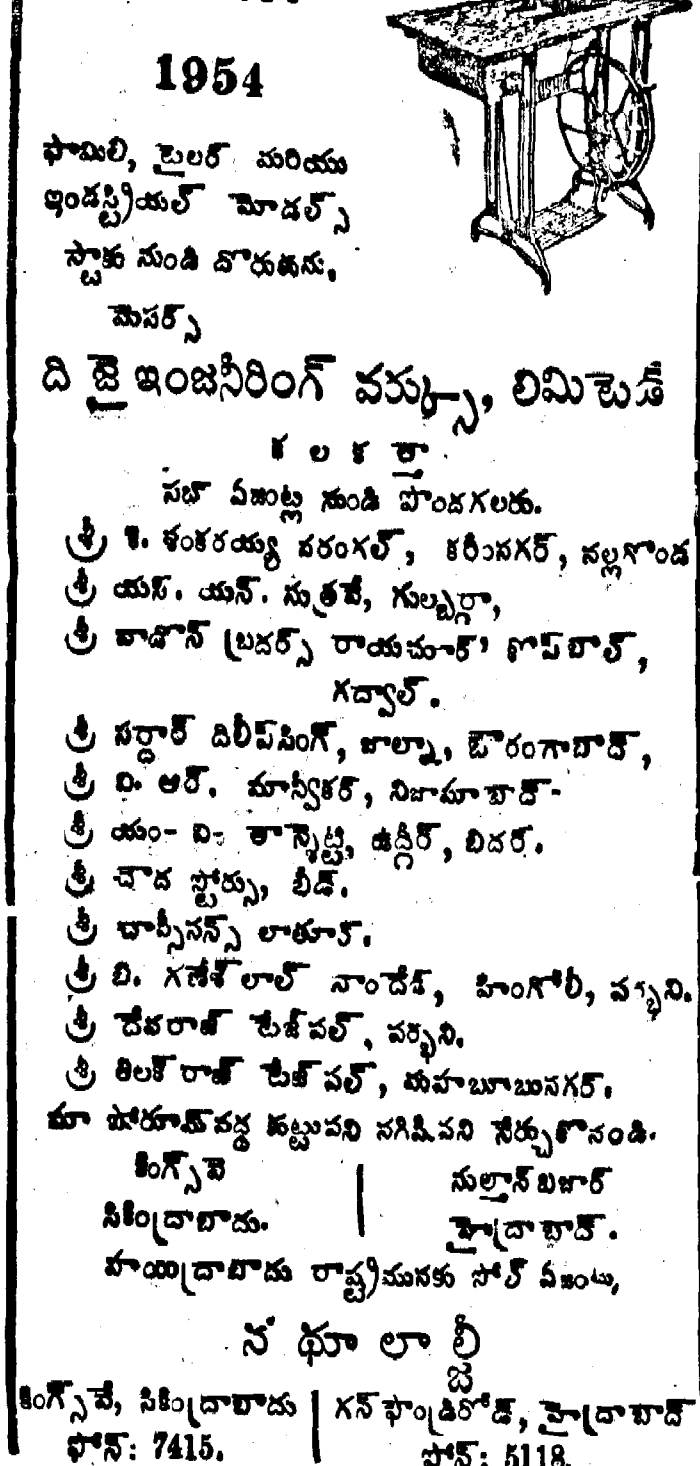 1954
ఫామిలి, టైలర్ మరియు
ఇండస్ట్రియల్ మోడల్స్
స్టాకు నుండి దొరుకును,
మెసర్స్
ది జై ఇంజనీరింగ్ వర్క్సు, లిమిటెడ్
కలకత్తా
సబ్ ఏజంట్ల నుండి పొందగలరు.
శ్రీ కె. శంకరయ్య వరంగల్, కరీంనగర్, నల్లగొండ
శ్రీ యస్. యన్. సుత్రవే, గుల్బర్గా,
శ్రీ బ్రదర్స్ రాయచూర్' కోప్‌బాల్,
గద్వాల్.
శ్రీ సర్దార్ దిలీప్‌సింగ్, జాల్నా, ఔరంగాబాద్,
శ్రీ వి. ఆర్. మాన్వీకర్, నిజామాబాద్-
శ్రీ యం- వి- కాన్శెట్టి, ఉద్గీర్, బిదర్.
శ్రీ చౌద స్టోర్సు, బీడ్.
శ్రీ చాప్సీసన్స్ లాతూర్.
శ్రీ బి. గణేశ్ లాల్ నాందేడ్, హింగోలీ, పర్భని.
శ్రీ దేవరాజ్ టేజ్‌పల్, పర్భని.
శ్రీ తిలక్ రాజ్ టేజ్‌పల్, మహబూబునగర్.
మా షోరూమ్‌వద్ద కుట్టుపని నగిషీపని నేర్చుకొనండి.
కింగ్స్‌వె | సుల్తాన్ బజార్
సికింద్రాబాదు. | హైద్రాబాద్.
హయిద్రాబాదు రాష్ట్రమునకు సోల్ ఏజంటు,
నథూలాల్జీ
కింగ్స్‌వే, సికింద్రాబాదు | గన్ ఫౌండ్రిరోడ్, హైద్రాబాద్
ఫోన్: 7415. | ఫోన్: 5118.